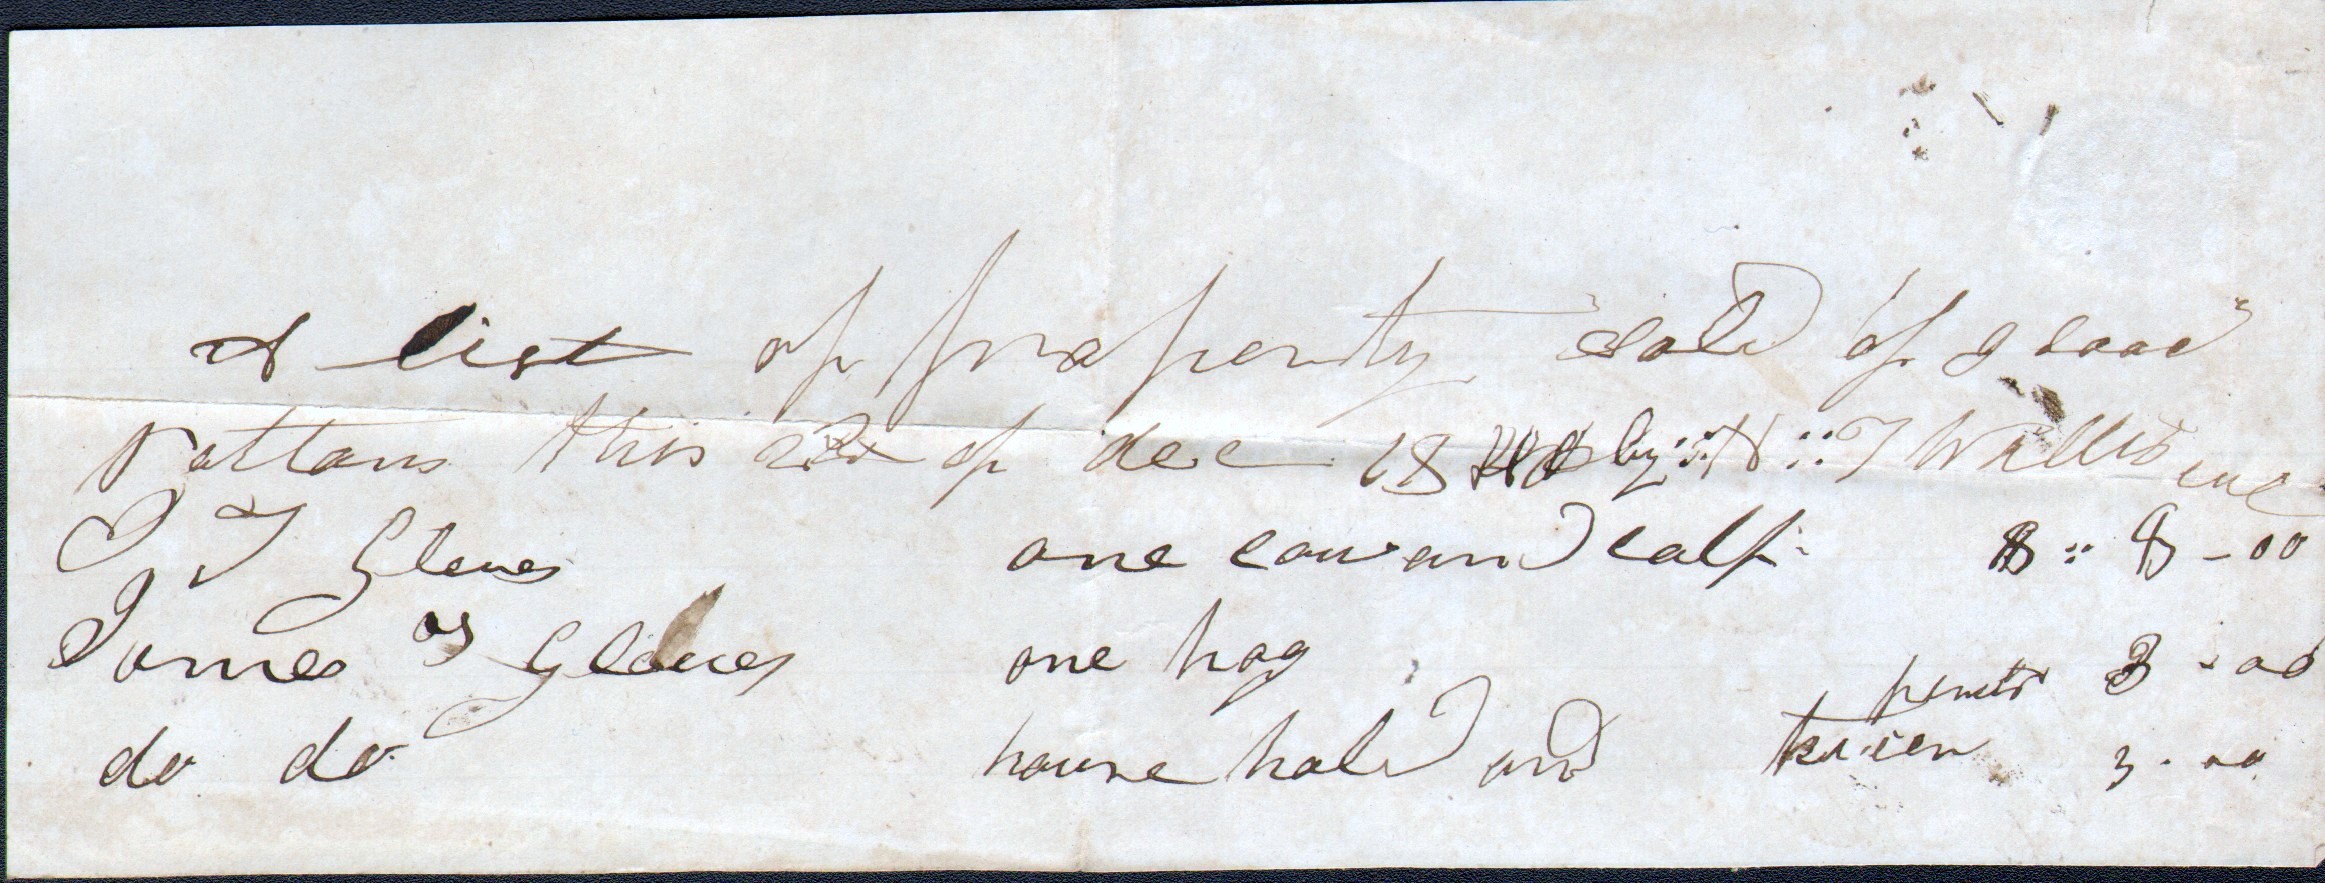 A list of property sold of Isaac
pattons this 22 of dec 18 by :: N :: T Wallis
J T Gleves one cow and calf $ :: 8 - 00
James Gleves one hog 3 - 00
do do house hold and kitchen 3 - 00